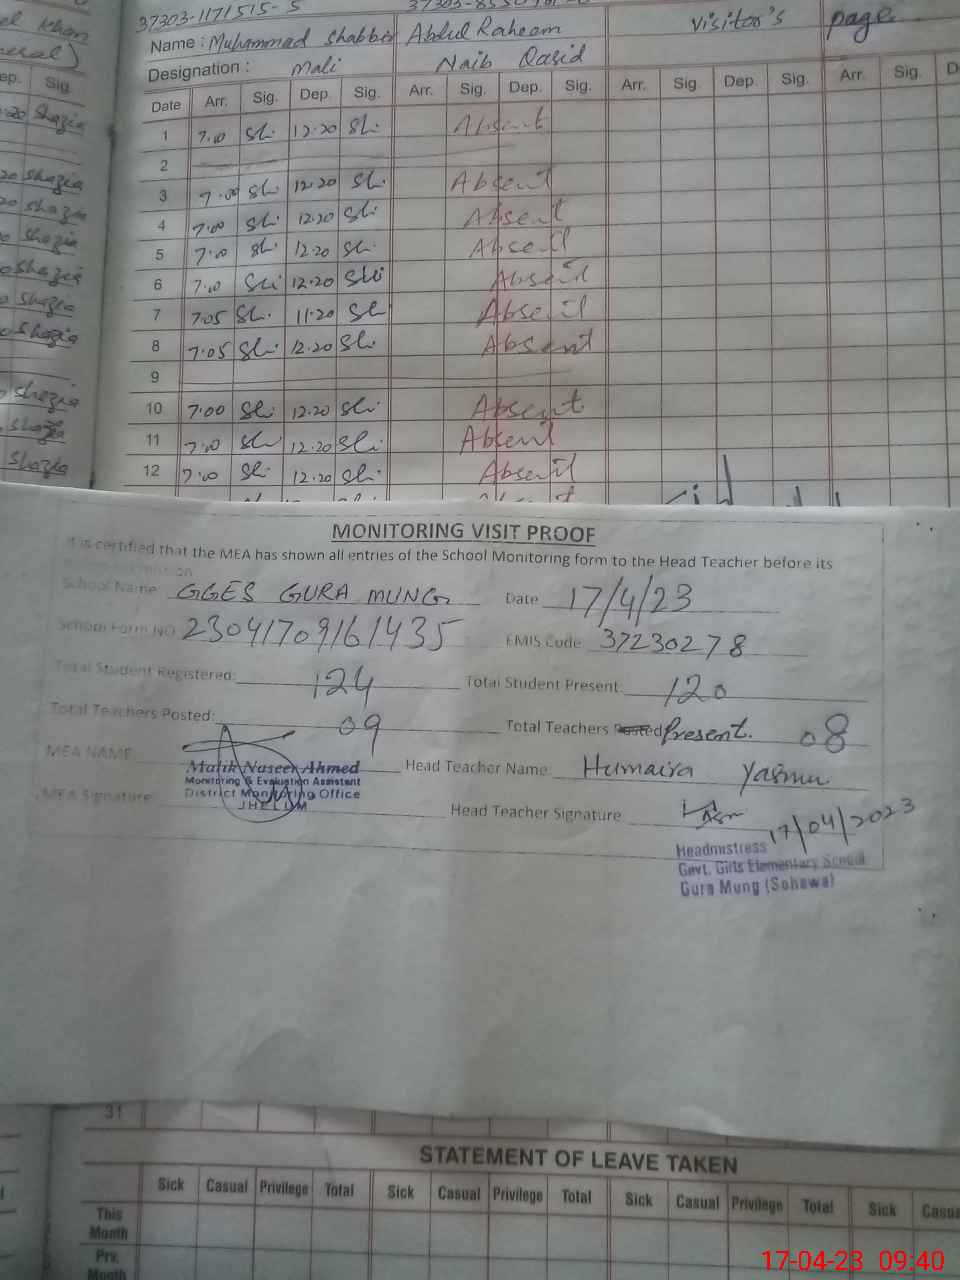 37303-1171515-5
Name: Muhammad Shabbir Abdul Raheem Visitor's page
Designation: Mali Naib Qasid
Date Arr. Sig. Dep. Sig. Arr. Sig. Dep. Sig. Arr. Sig. Dep. Sig. Arr. Sig.
1 7.00 Sh. 12.20 Sh. Absent
2
3 7.00 Sh. 12.20 Sh. Absent
4 7.00 Sh. 12.20 Sh. Absent
5 7.00 Sh. 12.20 Sh. Absent
6 7.00 Sh 12.20 Sh Absent
7 7.05 Sh. 11.20 Sh Absent
8 7.05 Sh. 12.20 Sh. Absent
9
10 7.00 Sh. 12.20 Sh. Absent
11 7.00 Sh 12.20 Sh. Absent
12 7.00 Sh. 12.20 Sh. Absent
khan
ep. Sig.
Shazia
Shazia
Shazia
Shazia
Shazia
Shazia
Shazia
Shazia
Shazia
Shazia
MONITORING VISIT PROOF
It is certified that the MEA has shown all entries of the School Monitoring form to the Head Teacher before its
School Name GGES GURA MUNG Date 17/4/23
School Form NO 23041709161435 EMIS Code 37230278
Total Student Registered: 124 Total Student Present: 120
Total Teachers Posted: 09 Total Teachers Posted Present. 08
MEA NAME Malik Naseer Ahmed Head Teacher Name Humaira Yasmin
Monitoring & Evaluation Assistant
District Monitoring Office
JHELUM
MEA Signature Head Teacher Signature
17/04/2023
Headmistress
Govt. Girls Elementary School
Gura Mung (Sohawa)
31
STATEMENT OF LEAVE TAKEN
Sick Casual Privilege Total Sick Casual Privilege Total Sick Casual Privilege Total Sick Casual
This Month
Prv. Month
17-04-23 09:40